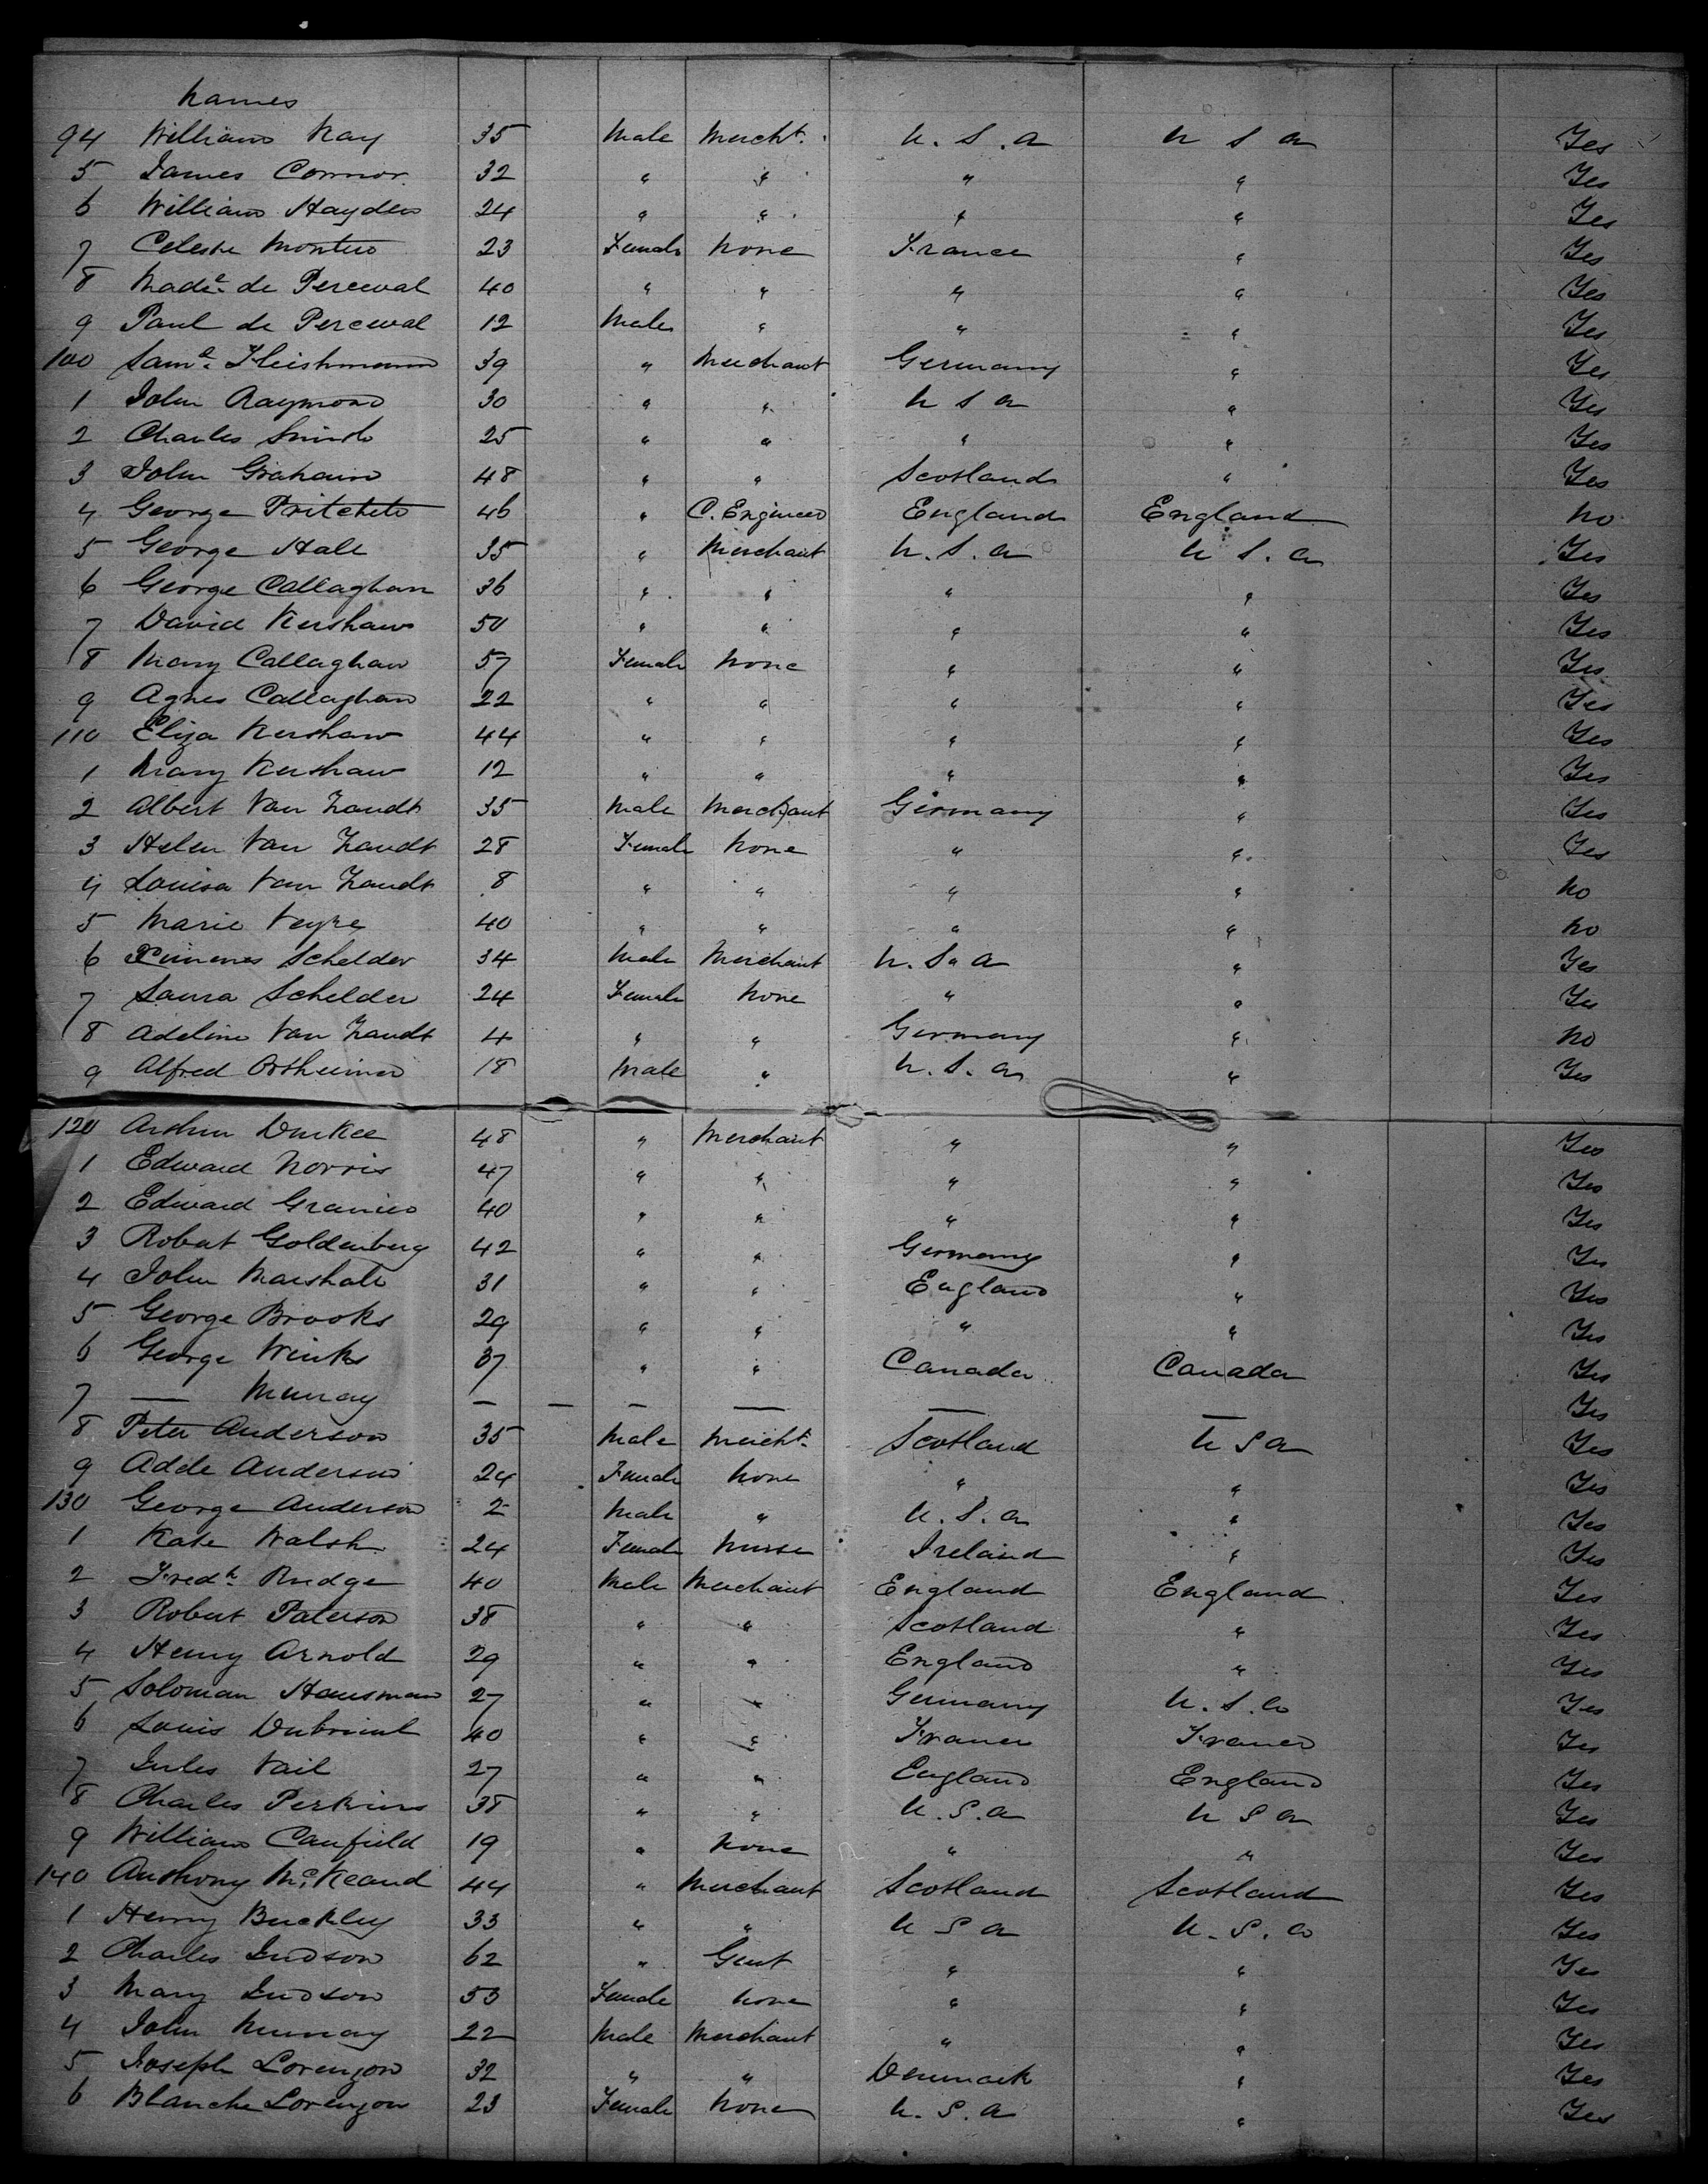 Names
94 William Kay 35 Male Mercht. U. S. A U S A Yes
5 James Connor 32 " " " " Yes
6 William Hayden 24 " " " " Yes
7 Celeste 23 Female None France " Yes
8 Made. de Perceval 40 " " " " Yes
9 Paul de Perceval 12 Male " " " Yes
100 Saml. Fleishmann 39 " Merchant Germany " Yes
1 John Raymond 30 " " U S A " Yes
2 Charles Smith 25 " " " " Yes
3 John Graham 48 " " Scotland " Yes
4 George Pritchett 46 " C. Engineer England England No
5 George Hall 35 " Merchant U. S. A U S. A Yes
6 George Callaghan 36 " " " " Yes
7 David Kershaw 50 " " " " Yes
8 Mary Callaghan 57 Female None " " Yes
9 Agnes Callaghan 22 " " " " Yes
110 Eliza Kershaw 44 " " " " Yes
1 Mary Kershaw 12 " " " " Yes
2 Albert Van Zandt 35 Male Merchant Germany " Yes
3 Helen Van Zandt 28 Female None " " Yes
4 Louisa Van Zandt 8 " " " " No
5 Marie 40 " " " " No
6 Ximenes Schelder 34 Male Merchant U. S. A " Yes
7 Laura Schelder 24 Female None " " Yes
8 Adeline Van Zandt 4 " " Germany " No
9 Alfred Ostheimer 18 Male " U. S. A " Yes
120 Arthur Durkee 48 " Merchant " " Yes
1 Edward Norris 47 " " " " Yes
2 Edward 40 " " " " Yes
3 Robert Goldenberg 42 " " Germany " Yes
4 John Marshall 31 " " England " Yes
5 George Brooks 29 " " " " Yes
6 George Winks 37 " " Canada Canada Yes
7 — Murray — — — — — — Yes
8 Peter Anderson 35 Male Mercht. Scotland U S A Yes
9 Adde Anderson 24 Female None " " Yes
130 George Anderson 2 Male " U. S. A " Yes
1 Kate Walsh 24 Female Nurse Ireland " Yes
2 Fredk. Rudge 40 Male Merchant England England Yes
3 Robert Paterson 38 " " Scotland " Yes
4 Henry Arnold 29 " " England " Yes
5 Soloman Hausman 27 " " Germany U. S. A Yes
6 Louis 40 " " France France Yes
7 Jules Vail 27 " " England England Yes
8 Charles Perkins 38 " " U. S. A U S A Yes
9 William Canfield 19 " None " " Yes
140 Anthony McKeand 44 " Merchant Scotland Scotland Yes
1 Henry Buckley 33 " " U S A U. S. A Yes
2 Charles Judson 62 " Gent " " Yes
3 Mary Judson 53 Female None " " Yes
4 John Murray 22 Male Merchant " " Yes
5 Joseph Lorenzon 32 " " Denmark " Yes
6 Blanche Lorenzon 23 Female None U. S. A " Yes